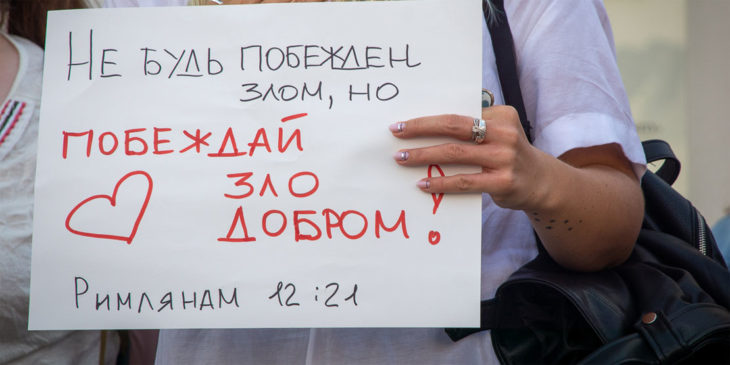 Не будь побежден
злом, но
побеждай
зло
добром!
Римлянам 12:21